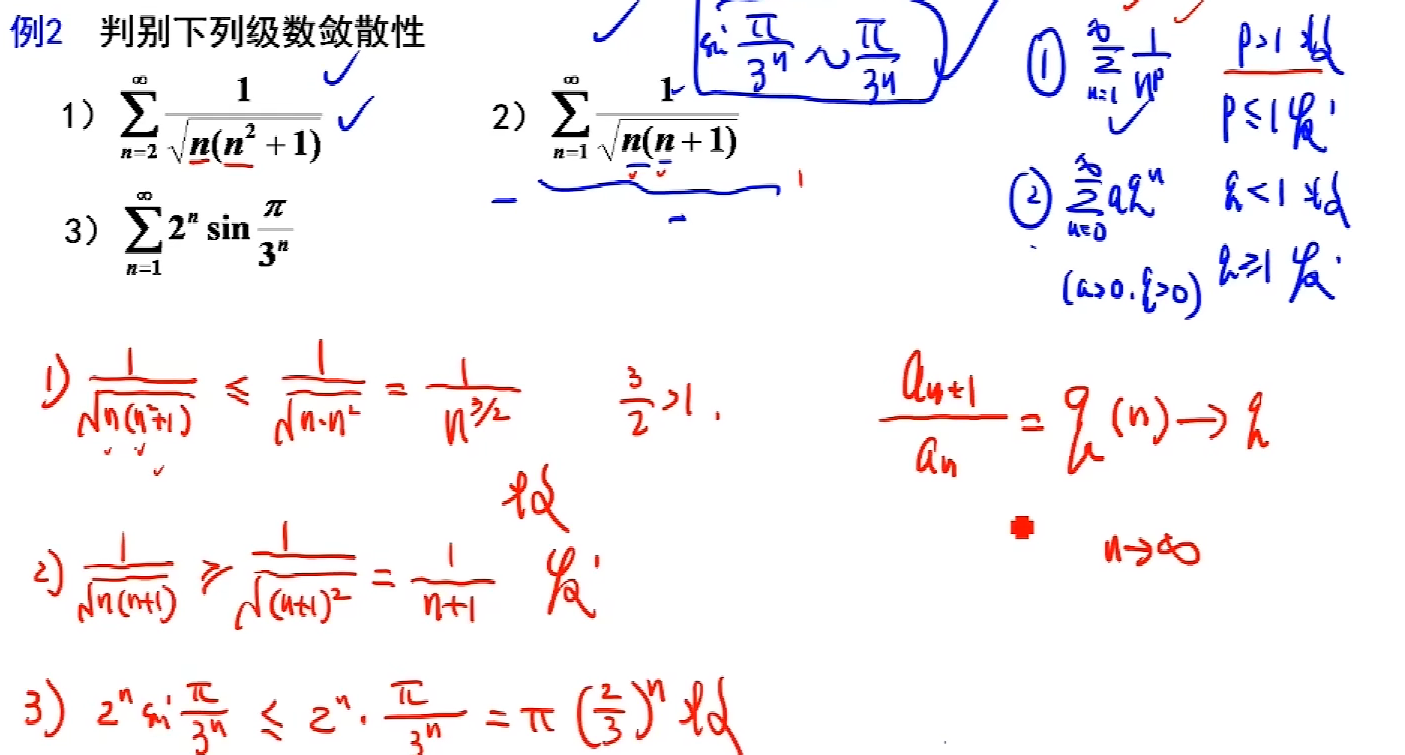 例2 判别下列级数敛散性
1) ∑_{n=2}^{∞} 1/√(n(n²+1))
2) ∑_{n=1}^{∞} 1/√(n(n+1))
3) ∑_{n=1}^{∞} 2ⁿ sin π/3ⁿ
sin π/3ⁿ ~ π/3ⁿ
① ∑_{n=1}^{∞} 1/n^p p>1 收
p≤1 发
② ∑_{n=0}^{∞} aqⁿ q<1 收
(a>0, q>0) q≥1 发
1) 1/√(n(n²+1)) ≤ 1/√(n·n²) = 1/n^{3/2} 3/2>1.
收
2) 1/√(n(n+1)) ≥ 1/√((n+1)²) = 1/(n+1) 发
3) 2ⁿ sin π/3ⁿ ≤ 2ⁿ · π/3ⁿ = π (2/3)ⁿ 收
a_{n+1}/a_n = q(n) → q
n→∞